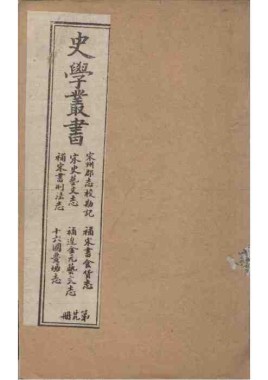 史學叢書
宋州郡志校勘記
補宋書食貨志
宋史藝文志
補遼金元藝文志
補宋書刑法志
十六國疆域志
第廿冊